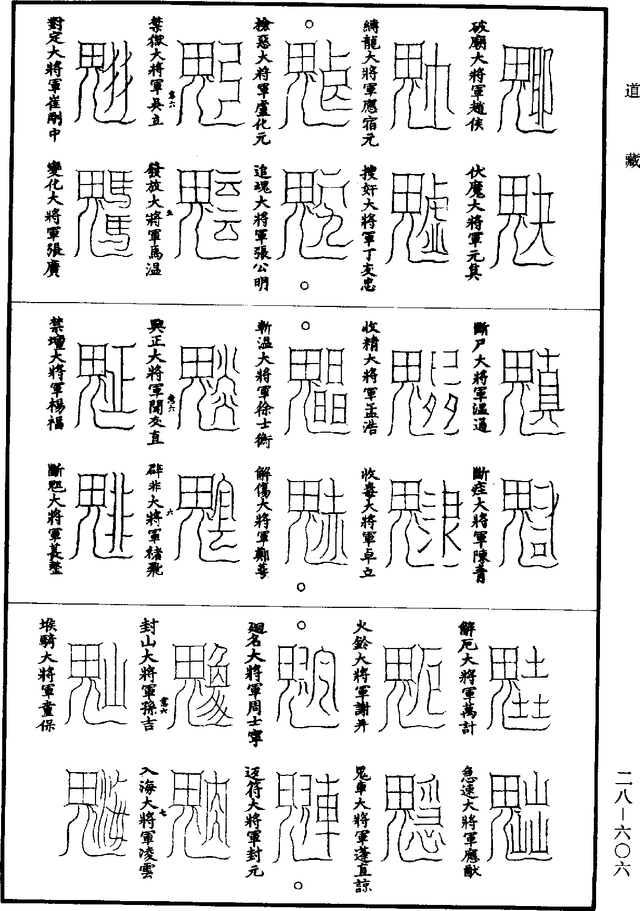 道藏
破廟大將軍趙俠
伏魔大將軍元真
縛龍大將軍應宿元
搜奸大將軍丁友忠
檢惡大將軍盧化元
追魂大將軍張公明
禁獄大將軍吳立
發放大將軍馬溫
對定大將軍崔剛中
變化大將軍張廣
斷尸大將軍溫通
斷疰大將軍陳青
收精大將軍孟浩
收毒大將軍卓立
斬溫大將軍徐士衡
解傷大將軍鄭尊
興正大將軍閻友直
辟非大將軍褚飛
禁壇大將軍楊福
解厄大將軍萬計
急速大將軍應猷
火鈴大將軍謝丼
鬼車大將軍蓬直諒
迴名大將軍周士寧
迓符大將軍封元
封山大將軍孫吉
入海大將軍凌雲
堠騎大將軍童保
二八—六〇六